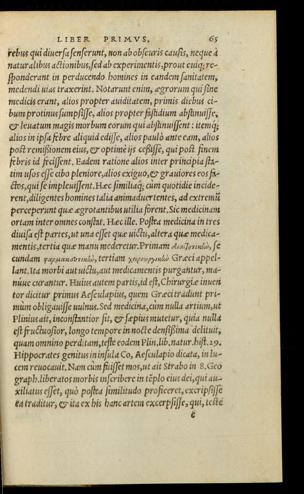 LIBER PRIMVS. 65
rebus qui diuersa senserunt, non ab obscuris causis, neque à
naturalibus actionibus, sed ab experimentis, prout cuiq; re-
spōnderant in perducendo homines in eandem sanitatem,
medendi uias traxerint. Notarunt enim, ægrorum qui sine
medicis erant, alios propter auiditatem, primis diebus ci-
bum protinus sumpsisse, alios propter fastidium abstinuisse,
& leuatum magis morbum eorum qui abstinuissent: itemq;
alios in ipsa febre aliquid edisse, alios paulò ante eam, alios
post remissionem eius, & optime ijs cessisse, qui post finem
febris id fecissent. Eadem ratione alios inter principia sta-
tim usos esse cibo pleniore, alios exiguo, & grauiores eos fa-
ctos, qui se impleuissent. Hæc similiaq; cùm quotidie incide-
rent, diligentes homines talia animaduertentes, ad extremū
perceperunt quæ ægrotantibus utilia forent. Sic medicinam
ortam inter omnes constat. Hæc ille. Postea medicina in tres
diuisa est partes, ut una esset quæ uictu, altera quæ medica-
mentis, tertia quæ manu mederetur. Primam διαιτητικὴν, se
cundam φαρμακευτικὴν, tertiam χειρουργικὴν Græci appel-
lant. Ita morbi aut uictu, aut medicamentis purgantur, ma-
núue curantur. Huius autem partis, id est, Chirurgiæ inuen
tor dicitur primus Aesculapius, quem Græci tradunt pri-
mùm obligauisse uulnus. Sed medicina, cùm nulla artium, ut
Plinius ait, inconstantior sit, & sæpius mutetur, quia nulla
est fructuosior, longo tempore in nocte densissima delituit,
quam omnino perditam, teste eodem Plin. lib. natur. hist. 29.
Hippocrates genitus in insula Co, Aesculapio dicata, in lu-
cem reuocauit. Nam cùm fuisset mos, ut ait Strabo in 8. Geo
graph. liberatos morbis inscribere in tēplo eius dei, qui au-
xiliatus esset, quò postea similitudo proficeret, excripsisse
ea traditur, & ita ex his hanc artem excerpsisse, qui, teste
e